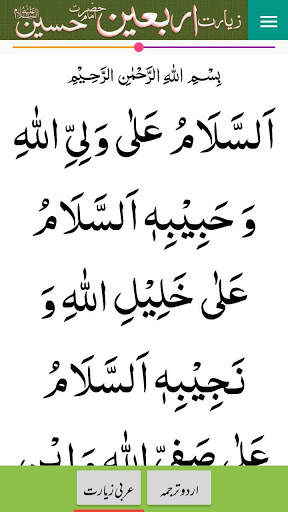 زیارت اربعین حضرت امام حسین علیہ السلام
بِسْمِ اللهِ الرَّحْمٰنِ الرَّحِيْمِ
اَلسَّلَامُ عَلٰى وَلِيِّ اللهِ
وَ حَبِيْبِهٖ اَلسَّلَامُ
عَلٰى خَلِيْلِ اللهِ وَ
نَجِيْبِهٖ اَلسَّلَامُ
عَلٰى صَفِيِّ اللهِ وَ ابْنِ
عربی زیارت
اردو ترجمہ